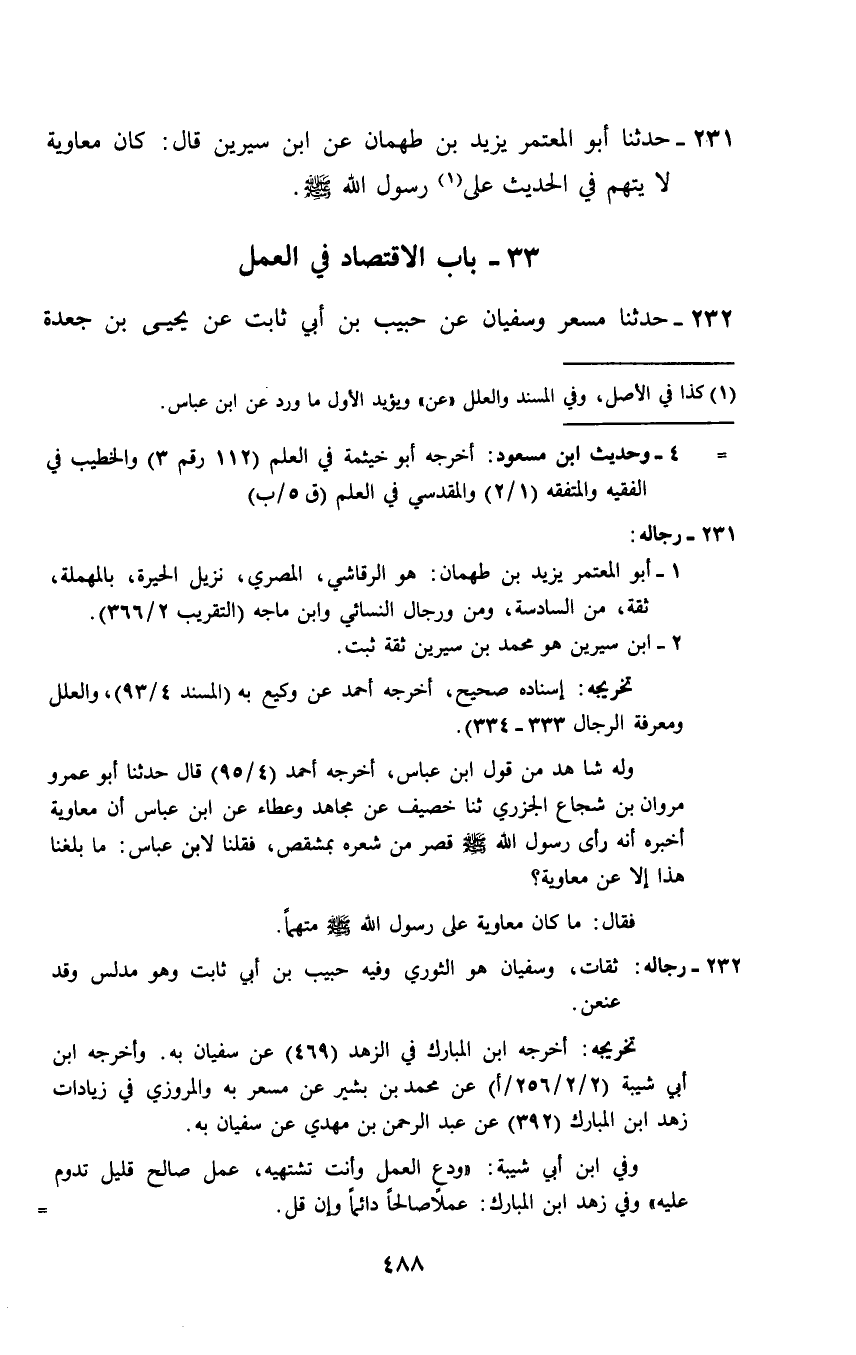 ٢٣١ ـ حدثنا أبو المعتمر يزيد بن طهمان عن ابن سيرين قال: كان معاوية
لا يتهم في الحديث على(١) رسول الله ﷺ.
٣٣ ـ باب الاقتصاد في العمل
٢٣٢ ـ حدثنا مسعر وسفيان عن حبيب بن أبي ثابت عن يحيـى بن جعدة
(١) كذا في الأصل، وفي المسند والعلل «عن» ويؤيد الأول ما ورد عن ابن عباس.
= ٤ ـ وحديث ابن مسعود: أخرجه أبو خيثمة في العلم (١١٢ رقم ٣) والخطيب في
الفقيه والمتفقه (٢/١) والمقدسي في العلم (ق ٥/ب)
٢٣١ ـ رجاله:
١ ـ أبو المعتمر يزيد بن طهمان: هو الرقاشي، المصري، نزيل الحيرة، بالمهملة،
ثقة، من السادسة، ومن ورجال النسائي وابن ماجه (التقريب ٣٦٦/٢).
٢ ـ ابن سيرين هو محمد بن سيرين ثقة ثبت.
تخريجه: إسناده صحيح، أخرجه أحمد عن وكيع به (المسند ٩٣/٤)، والعلل
ومعرفة الرجال ٣٣٣ ـ ٣٣٤).
وله شا هد من قول ابن عباس، أخرجه أحمد (٩٥/٤) قال حدثنا أبو عمرو
مروان بن شجاع الجزري ثنا خصيف عن مجاهد وعطاء عن ابن عباس أن معاوية
أخبره أنه رأى رسول الله ﷺ قصر من شعره بمشقص، فقلنا لابن عباس: ما بلغنا
هذا إلا عن معاوية؟
فقال: ما كان معاوية على رسول الله ﷺ متهماً.
٢٣٢ ـ رجاله: ثقات، وسفيان هو الثوري وفيه حبيب بن أبي ثابت وهو مدلس وقد
عنعن.
تخريجه: أخرجه ابن المبارك في الزهد (٤٦٩) عن سفيان به. وأخرجه ابن
أبي شيبة (٢٥٦/٢/٢/أ) عن محمد بن بشير عن مسعر به والمروزي في زيادات
زهد ابن المبارك (٣٩٢) عن عبد الرحمن بن مهدي عن سفيان به.
وفي ابن أبي شيبة: «ودع العمل وأنت تشتهيه، عمل صالح قليل تدوم
عليه» وفي زهد ابن المبارك: عملاًصالحاً دائماً وإن قل. =
٤٨٨